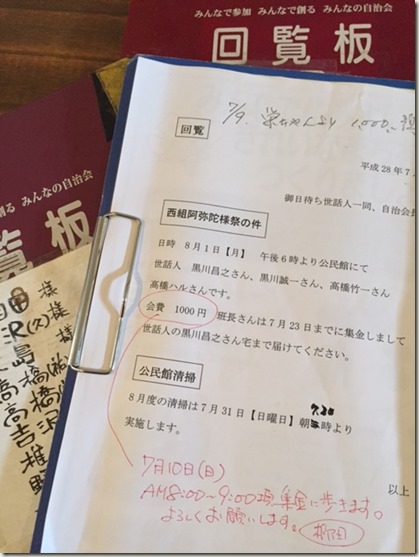 みんなで参加 みんなで創る みんなの自治会
回覧板
創る みんなの自治会
覧板
7/9.
1000.
回覧
平成28年7.
御日待ち世話人一同、自治会長
西組阿弥陀様祭の件
日時 8月1日【月】 午後6時より公民館にて
世話人 黒川昌之さん、黒川誠一さん、高橋竹一さん
高橋ハルさんです。
会費 1000円 班長さんは7月23日までに集金しまして
世話人の黒川昌之さん宅まで届けてください。
公民館清掃
8月度の清掃は7月31日【日曜日】朝 7:30 時より
実施します。
以上
7月10日(日)
AM8:00〜9:00頃集金に歩きます。
よろしくお願いします。